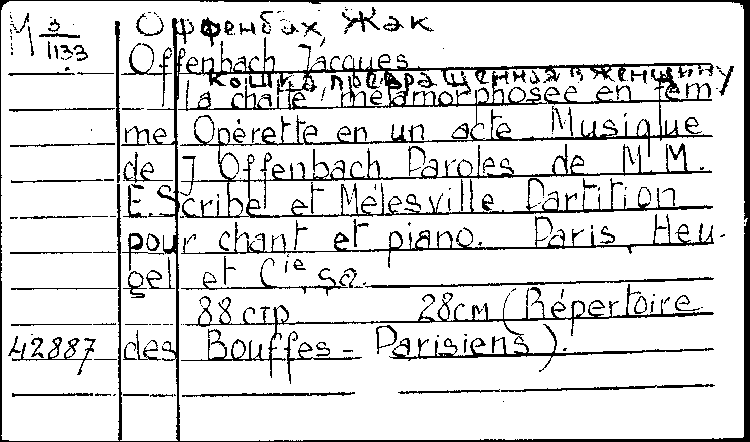 М 3/1133 Оффенбах, Жак
Offenbach Jacques.
Кошка, превращенная в женщину
La chatte métamorphosée en fem
me. Opérette en un acte. Musique
de J. Offenbach. Paroles de M.M.
E. Scribe et Mélesville. Partition
pour chant et piano. Paris, Heu-
gel et Cie, sa.
88 стр. 28см (Répertoire
42887 des Bouffes - Parisiens).